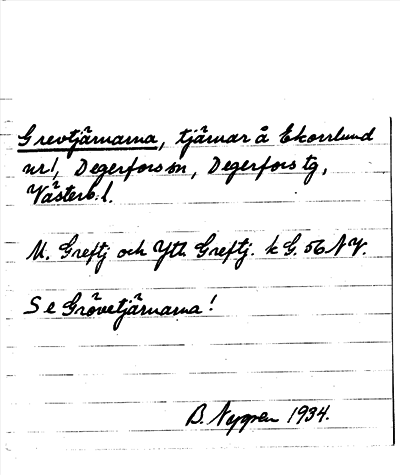 Grevtjärnarna, tjärnar å Ekorrlund
nr 1, Degerfors sn, Degerfors tg,
Västerb. l.
U. Greftj och Ytt. Greftj. k G. 56 NV.
Se Grövetjärnarna!
B. Nygren 1934.